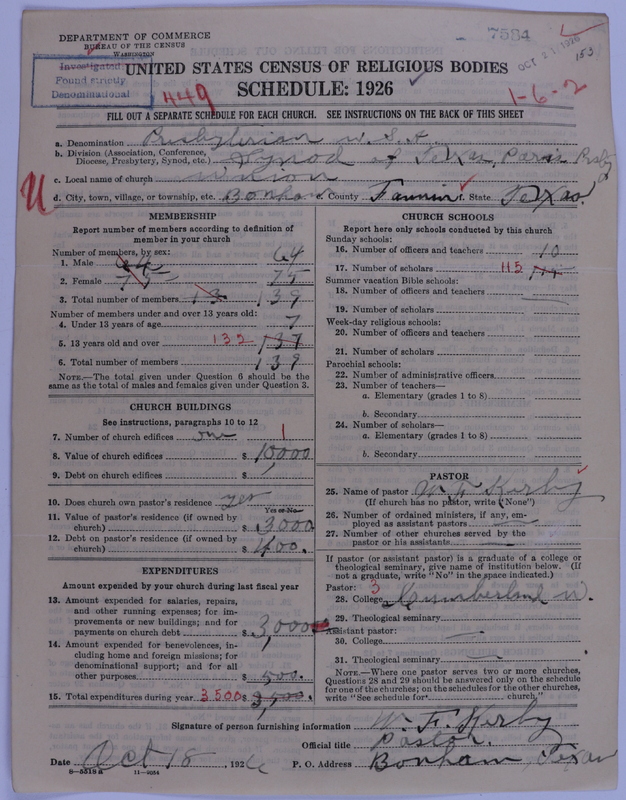 DEPARTMENT OF COMMERCE
BUREAU OF THE CENSUS
WASHINGTON
7584
OCT 21 1926
153
Investigated
Found strictly
Denominational
449
UNITED STATES CENSUS OF RELIGIOUS BODIES
SCHEDULE: 1926
1-6-2
FILL OUT A SEPARATE SCHEDULE FOR EACH CHURCH. SEE INSTRUCTIONS ON THE BACK OF THIS SHEET
a. Denomination Presbyterian U.S.A.
b. Division (Association, Conference,
Diocese, Presbytery, Synod, etc.) Synod of Texas, Paris Presby
c. Local name of church
d. City, town, village, or township, etc. Bonham e. County Fannin f. State Texas.
MEMBERSHIP
Report number of members according to definition of
member in your church
Number of members, by sex:
1. Male 64
2. Female 75
3. Total number of members 139
Number of members under and over 13 years old:
4. Under 13 years of age 7
5. 13 years old and over 132 137
6. Total number of members 139
NOTE.—The total given under Question 6 should be the
same as the total of males and females given under Question 3.
CHURCH BUILDINGS
See instructions, paragraphs 10 to 12
7. Number of church edifices one 1
8. Value of church edifices $ 10000
9. Debt on church edifices $
10. Does church own pastor's residence yes
Yes or No
11. Value of pastor's residence (if owned by
church) $ 3000
12. Debt on pastor's residence (if owned by
church) $ 400.
EXPENDITURES
Amount expended by your church during last fiscal year
13. Amount expended for salaries, repairs,
and other running expenses; for im-
provements or new buildings; and for
payments on church debt $ 3,000
14. Amount expended for benevolences, in-
cluding home and foreign missions; for
denominational support; and for all
other purposes $ 500.
15. Total expenditures during year 3500 $ 3,500.
CHURCH SCHOOLS
Report here only schools conducted by this church
Sunday schools:
16. Number of officers and teachers 10
17. Number of scholars 115
Summer vacation Bible schools:
18. Number of officers and teachers
19. Number of scholars
Week-day religious schools:
20. Number of officers and teachers
21. Number of scholars
Parochial schools:
22. Number of administrative officers
23. Number of teachers—
a. Elementary (grades 1 to 8)
b. Secondary
24. Number of scholars—
a. Elementary (grades 1 to 8)
b. Secondary
PASTOR
25. Name of pastor W F Kirby
(If church has no pastor, write "None")
26. Number of ordained ministers, if any, em-
ployed as assistant pastors
27. Number of other churches served by the
pastor or his assistants
If pastor (or assistant pastor) is a graduate of a college or
theological seminary, give name of institution below. (If
not a graduate, write "No" in the space indicated.)
Pastor: 3
28. College Cumberland U.
29. Theological seminary
Assistant pastor:
30. College
31. Theological seminary
NOTE.—Where one pastor serves two or more churches,
Questions 28 and 29 should be answered only on the schedule
for one of the churches; on the schedules for the other churches,
write "See schedule for church."
Signature of person furnishing information W. F. Kirby
Official title Pastor.
Date Oct 18, 1926 P. O. Address Bonham, Texas
8—5518a 11—9034